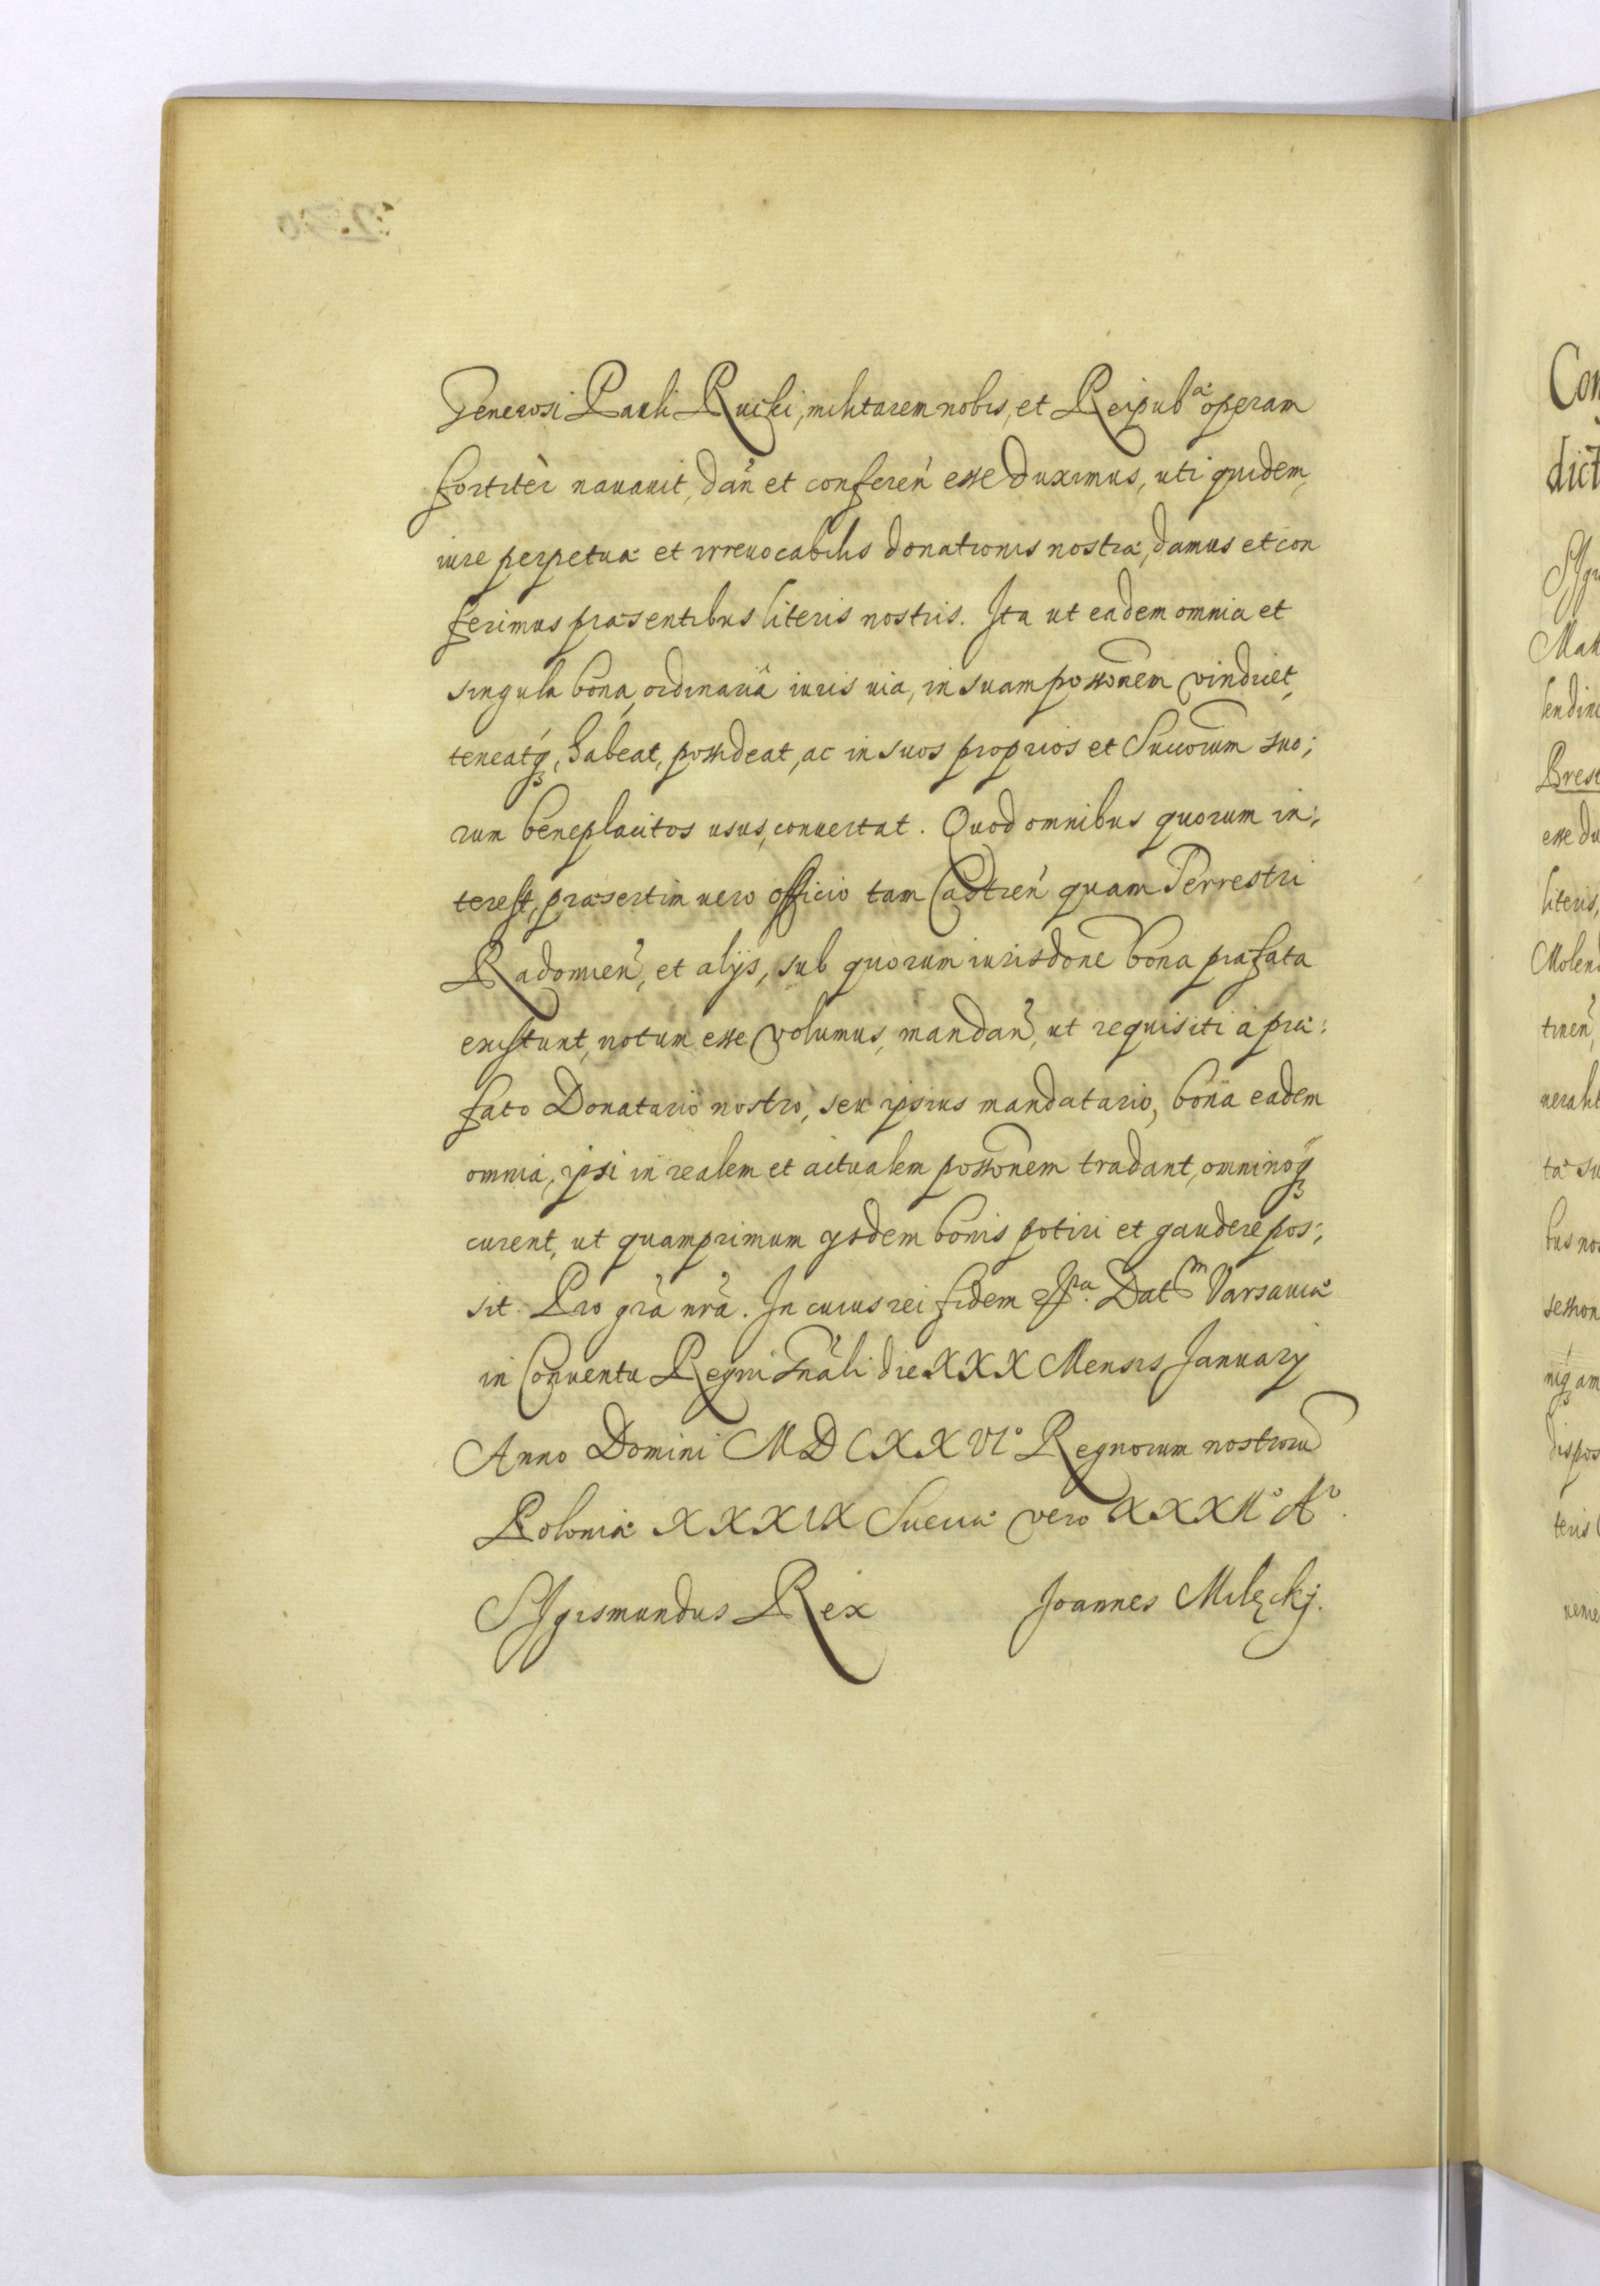 Generosi Pauli Rucki, militarem nobis, et Reipub^ae operam
fortitèr nauauit, dañ et confereñ esse duximus, uti quidem,
iure perpetuæ et irreuocabilis donationis nostræ, damus et con
ferimus præsentibus literis nostris. Ita ut eadem omnia et
singula bona, ordinariâ iuris uia, in suam possonem vindicet,
teneatq́ꝫ, habeat, possideat, ac in suos proprios et Succorum suo;
rum beneplacitos usus, conuertat. Quod omnibus quorum in;
terest, præsertim uero officio tam Castreń quam Terrestri
Radomień, et alijs, sub quorum iurisdone bona præfata
existunt, notum esse volumus, mandań, ut requisiti a præ:
fato Donatario nostro, seu ipsius mandatario, bona eadem
omnia, ipsi in realem et actualem possonem tradant, omninoq́ꝫ
curent, ut quamprimum ysdem bonis potiri et gaudere pos;
sit. Pro grã nrã. In cuius rei fidem Dat^m Varsauiæ
in Conuentu Regni Gnãli die XXX Mensis January
Anno Domini MDCXXVI° Regnorum nostroru
Poloniæ XXXIX Sueciæ vero XXXII° A°.
Sygismundus Rex Joannes Milęckj.
Con
dict
Bres
esse du
literis,
Molend
bus nos